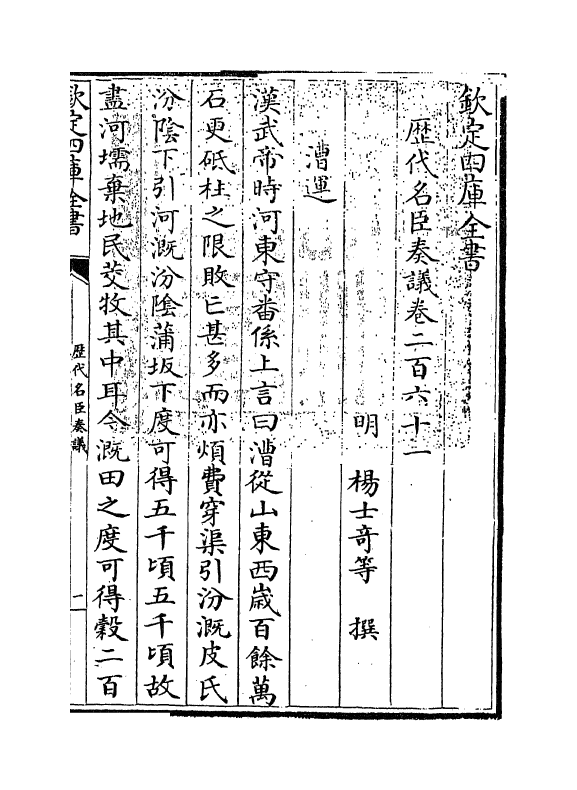 欽定四庫全書
歴代名臣奏議卷二百六十一
明 楊士奇等 撰
漕運
漢武帝時河東守番係上言曰漕從山東西歳百餘萬
石更砥柱之限敗亡甚多而亦煩費穿渠引汾溉皮氏
汾隂下引河溉汾隂蒲坂下度可得五千頃五千頃故
盡河壖棄地民茭牧其中耳今溉田之度可得榖二百
欽定四庫全書
歴代名臣奏議
一